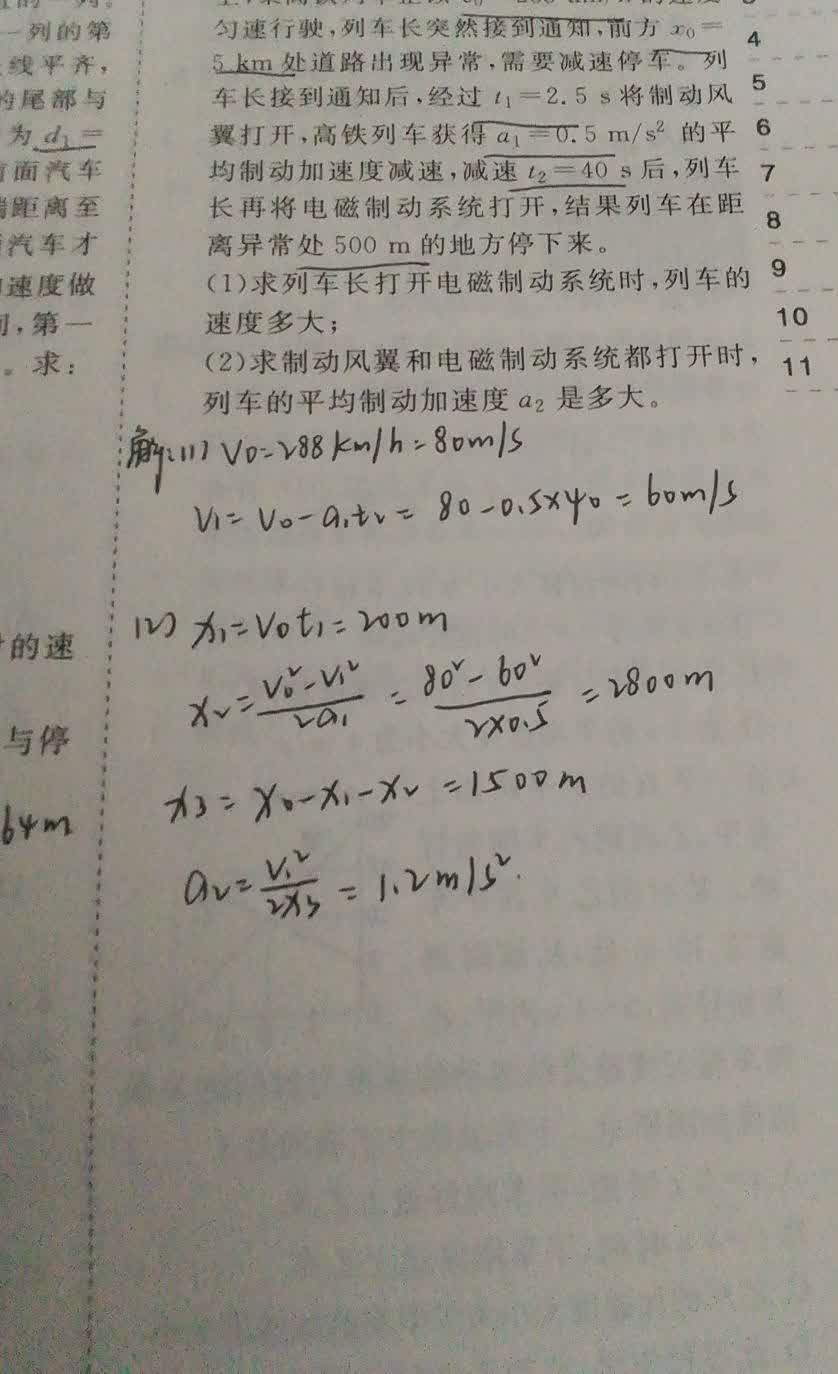 一列的第
线平齐,
的尾部与
为 d₁=
前面汽车
端距离至
汽车才
速度做
,第一
。求:
的速
与停
64m
匀速行驶,列车长突然接到通知,前方 x₀=
5 km 处道路出现异常,需要减速停车。列
车长接到通知后,经过 t₁=2.5 s 将制动风
翼打开,高铁列车获得 a₁=0.5 m/s² 的平
均制动加速度减速,减速 t₂=40 s 后,列车
长再将电磁制动系统打开,结果列车在距
离异常处 500 m 的地方停下来。
(1)求列车长打开电磁制动系统时,列车的
速度多大;
(2)求制动风翼和电磁制动系统都打开时,
列车的平均制动加速度 a₂ 是多大。
解:(1) V₀=288km/h=80m/s
V₁=V₀-a₁t₂=80-0.5×40=60m/s
(2) x₁=V₀t₁=200m
x₂=(V₀²-V₁²)/(2a₁)=(80²-60²)/(2×0.5)=2800m
x₃=x₀-x₁-x₂=1500m
a₂=V₁²/(2x₃)=1.2m/s².
4
5
6
7
8
9
10
11